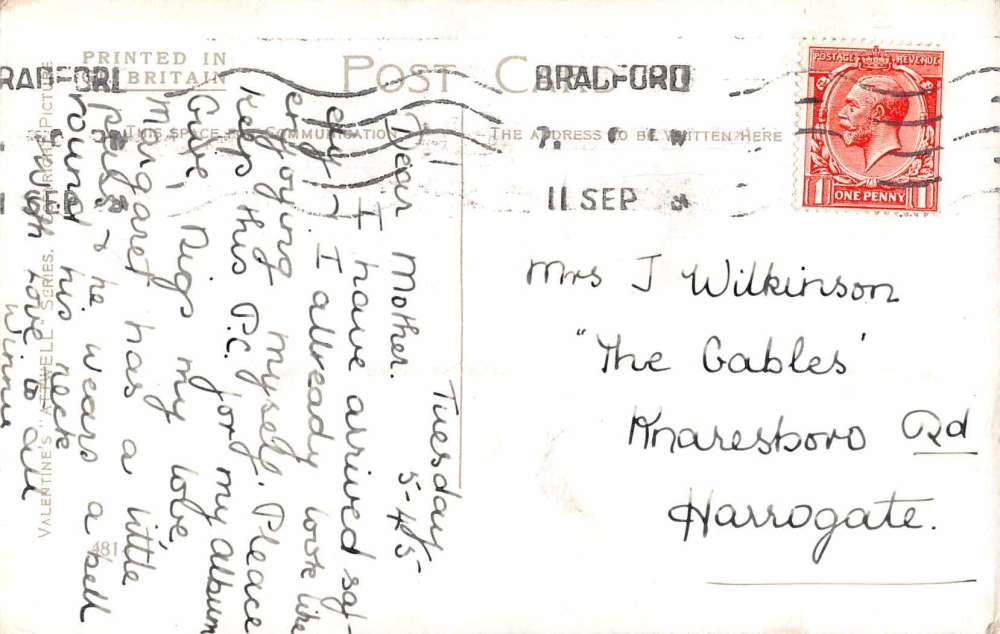 PRINTED IN
BRITAIN
POST CARD
BRADFORD
11 SEP
POSTAGE REVENUE
1 ONE PENNY 1
THIS SPACE FOR COMMUNICATION
THE ADDRESS TO BE WRITTEN HERE
VALENTINE'S "ATTWELL" SERIES.
481
Tuesday
5-45
Dear Mother.
I have arrived saf-
ely & I already look like
enjoying myself. Pleace
keep this P.C. for my album
Give, Nigs my love,
Margaret has a little
& he wears a bell
round his neck
With Love to all
Winnie
Mrs J Wilkinson
"The Gables'
Knaresboro Rd
Harrogate.